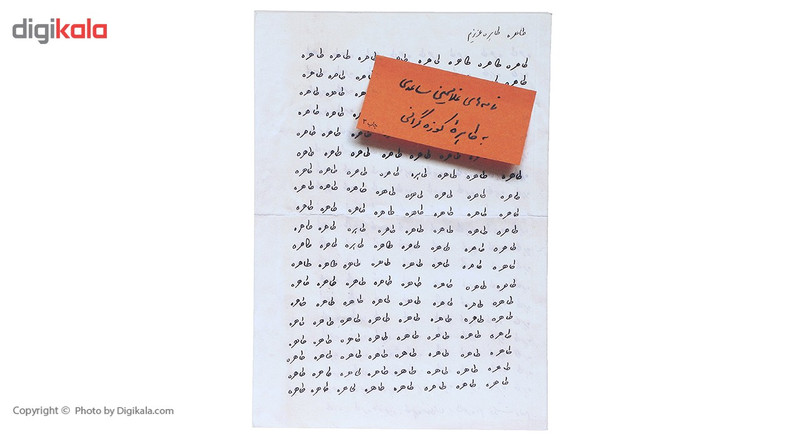 digikala
طاهره، طاهره عزیزم
طاهره طاهره طاهره طاهره طاهره طاهره طاهره طاهره
طاهره طاهره طاهره
طاهره طاهره
طاهره طاهره
نامه‌های غلامحسین ساعدی
به طاهرهٔ کوزه‌گرانی
چاپ ۳
طاهره طاهره
طاهره طاهره طاهره طاهره طاهره
طاهره طاهره طاهره طاهره طاهره طاهره طاهره طاهره
طاهره طاهره طاهره طاهره طاهره طاهره طاهره طاهره
طاهره طاهره طاهره طاهره طاهره طاهره طاهره طاهره
طاهره طاهره طاهره طاهره طاهره طاهره طاهره طاهره
طاهره طاهره طاهره طاهره طاهره طاهره طاهره طاهره
طاهره طاهره طاهره طاهره طاهره طاهره طاهره طاهره
طاهره طاهره طاهره طاهره طاهره طاهره طاهره طاهره
طاهره طاهره طاهره طاهره طاهره طاهره طاهره طاهره
طاهره طاهره طاهره طاهره طاهره طاهره طاهره طاهره
طاهره طاهره طاهره طاهره طاهره طاهره طاهره طاهره
طاهره طاهره طاهره طاهره طاهره طاهره طاهره طاهره
طاهره طاهره طاهره طاهره طاهره طاهره طاهره طاهره
طاهره طاهره طاهره طاهره طاهره طاهره طاهره طاهره
Copyright © Photo by Digikala.com